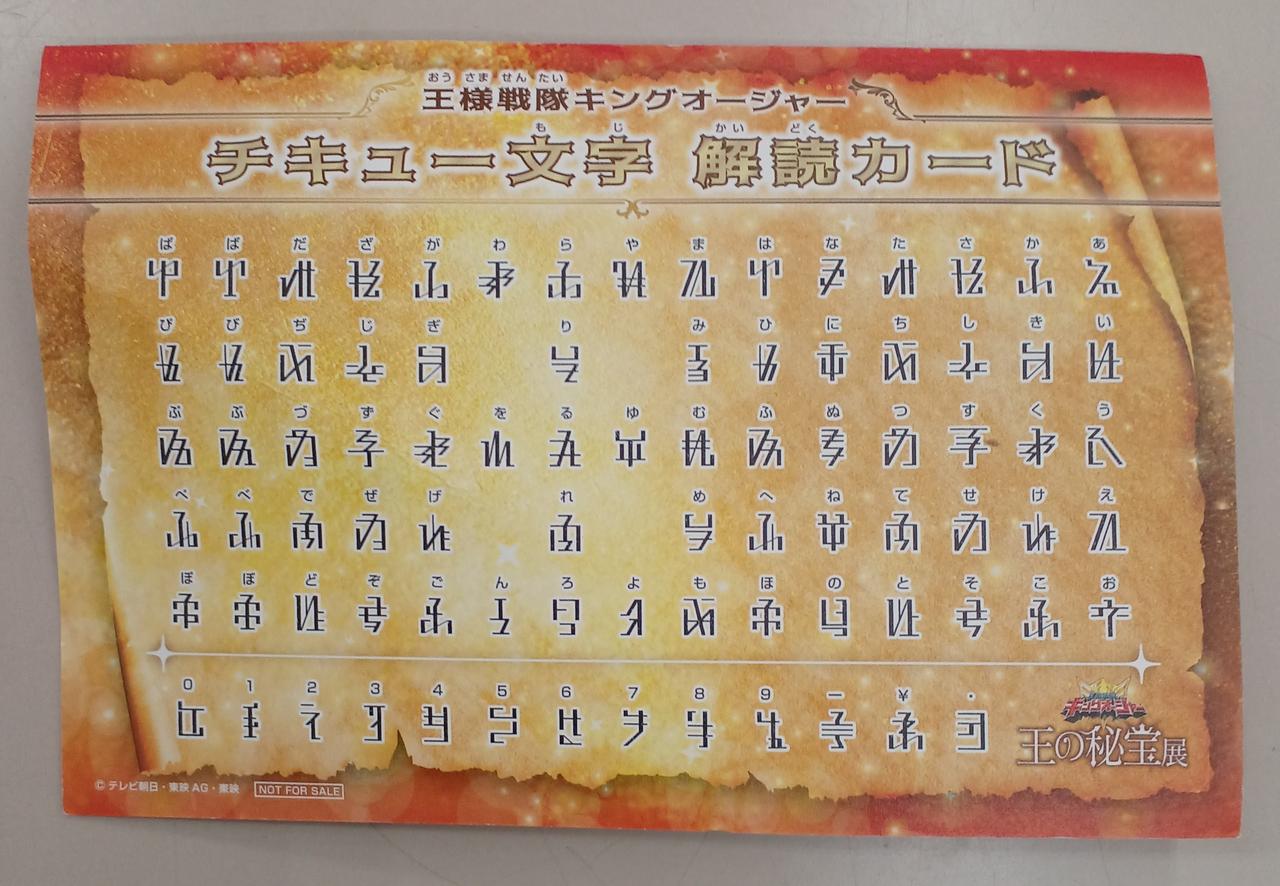 おう さま せん たい
王様戦隊キングオージャー
も じ かい どく
チキュー文字 解読カード
ぱ ば だ ざ が わ ら や ま は な た さ か あ
ぴ び ぢ じ ぎ り み ひ に ち し き い
ぷ ぶ づ ず ぐ を る ゆ む ふ ぬ つ す く う
ぺ べ で ぜ げ れ め へ ね て せ け え
ぽ ぼ ど ぞ ご ん ろ よ も ほ の と そ こ お
0 1 2 3 4 5 6 7 8 9 ー ¥ ・
キングオージャー
王の秘宝展
© テレビ朝日・東映AG・東映 NOT FOR SALE